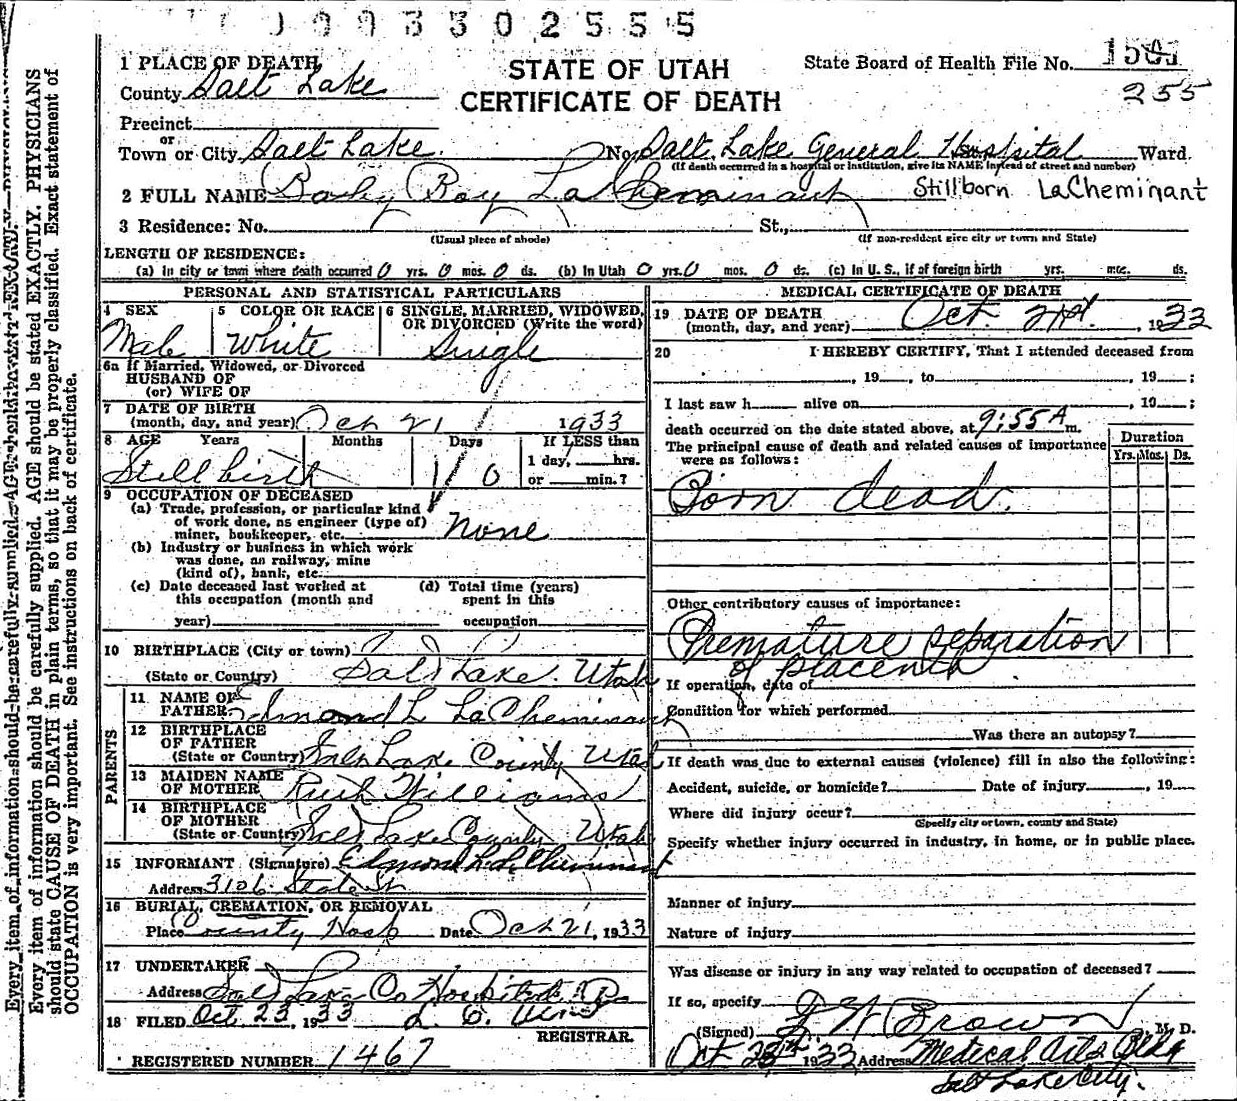 0 9 3 3 0 2 5 5 5
STATE OF UTAH
CERTIFICATE OF DEATH
State Board of Health File No.
255
1 PLACE OF DEATH
County Salt Lake
Precinct
or
Town or City Salt Lake. No. Salt Lake General Hospital Ward.
(If death occurred in a hospital or institution, give its NAME instead of street and number)
2 FULL NAME Baby Boy La Cheminant Stillborn LaCheminant
3 Residence: No. St.,
(Usual place of abode) (If non-resident give city or town and State)
LENGTH OF RESIDENCE:
(a) In city or town where death occurred 0 yrs. 0 mos. 0 ds. (b) In Utah 0 yrs. 0 mos. 0 ds. (c) In U. S., if of foreign birth yrs. mos. ds.
PERSONAL AND STATISTICAL PARTICULARS
4 SEX
Male
5 COLOR OR RACE
White
6 SINGLE, MARRIED, WIDOWED,
OR DIVORCED (Write the word)
Single
6a If Married, Widowed, or Divorced
HUSBAND OF
(or) WIFE OF
7 DATE OF BIRTH
(month, day, and year) Oct 21 1933
8 AGE Years Months Days If LESS than
1 day, hrs.
Still birth 0 or min.?
9 OCCUPATION OF DECEASED
(a) Trade, profession, or particular kind
of work done, as engineer (type of)
miner, bookkeeper, etc. None
(b) Industry or business in which work
was done, as railway, mine
(kind of), bank, etc.
(c) Date deceased last worked at
this occupation (month and
year)
(d) Total time (years)
spent in this
occupation
10 BIRTHPLACE (City or town)
(State or Country) Salt Lake. Utah
PARENTS
11 NAME OF
FATHER Edmond L LaCheminant
12 BIRTHPLACE
OF FATHER
(State or Country) Salt Lake County Utah
13 MAIDEN NAME
OF MOTHER Ruth Williams
14 BIRTHPLACE
OF MOTHER
(State or Country) Salt Lake County Utah
15 INFORMANT (Signature) Edmond L LaCheminant
Address 3106 State St
16 BURIAL, CREMATION, OR REMOVAL
Place County Hosp Date Oct 21, 1933
17 UNDERTAKER
Address Salt Lake Co Hospital
18 FILED Oct 23, 1933
REGISTRAR.
REGISTERED NUMBER 1467
MEDICAL CERTIFICATE OF DEATH
19 DATE OF DEATH
(month, day, and year) Oct. 21st. , 1933
20 I HEREBY CERTIFY, That I attended deceased from
, 19 , to , 19 ;
I last saw h alive on , 19 ;
death occurred on the date stated above, at 9:55 A m.
The principal cause of death and related causes of importance
were as follows:
Duration
Yrs. Mos. Ds.
Born dead.
Other contributory causes of importance:
Premature separation
of placenta
If operation, date of
Condition for which performed
Was there an autopsy?
If death was due to external causes (violence) fill in also the following:
Accident, suicide, or homicide? Date of injury , 19
Where did injury occur?
(Specify city or town, county and State)
Specify whether injury occurred in industry, in home, or in public place.
Manner of injury
Nature of injury
Was disease or injury in any way related to occupation of deceased?
If so, specify
(Signed) Brown , M. D.
Oct 23th 1933 Address Medical Arts Bldg
Salt Lake City.
Every item of information should be carefully supplied. AGE should be stated EXACTLY. PHYSICIANS
should state CAUSE OF DEATH in plain terms, so that it may be properly classified. Exact statement of
OCCUPATION is very important. See instructions on back of certificate.